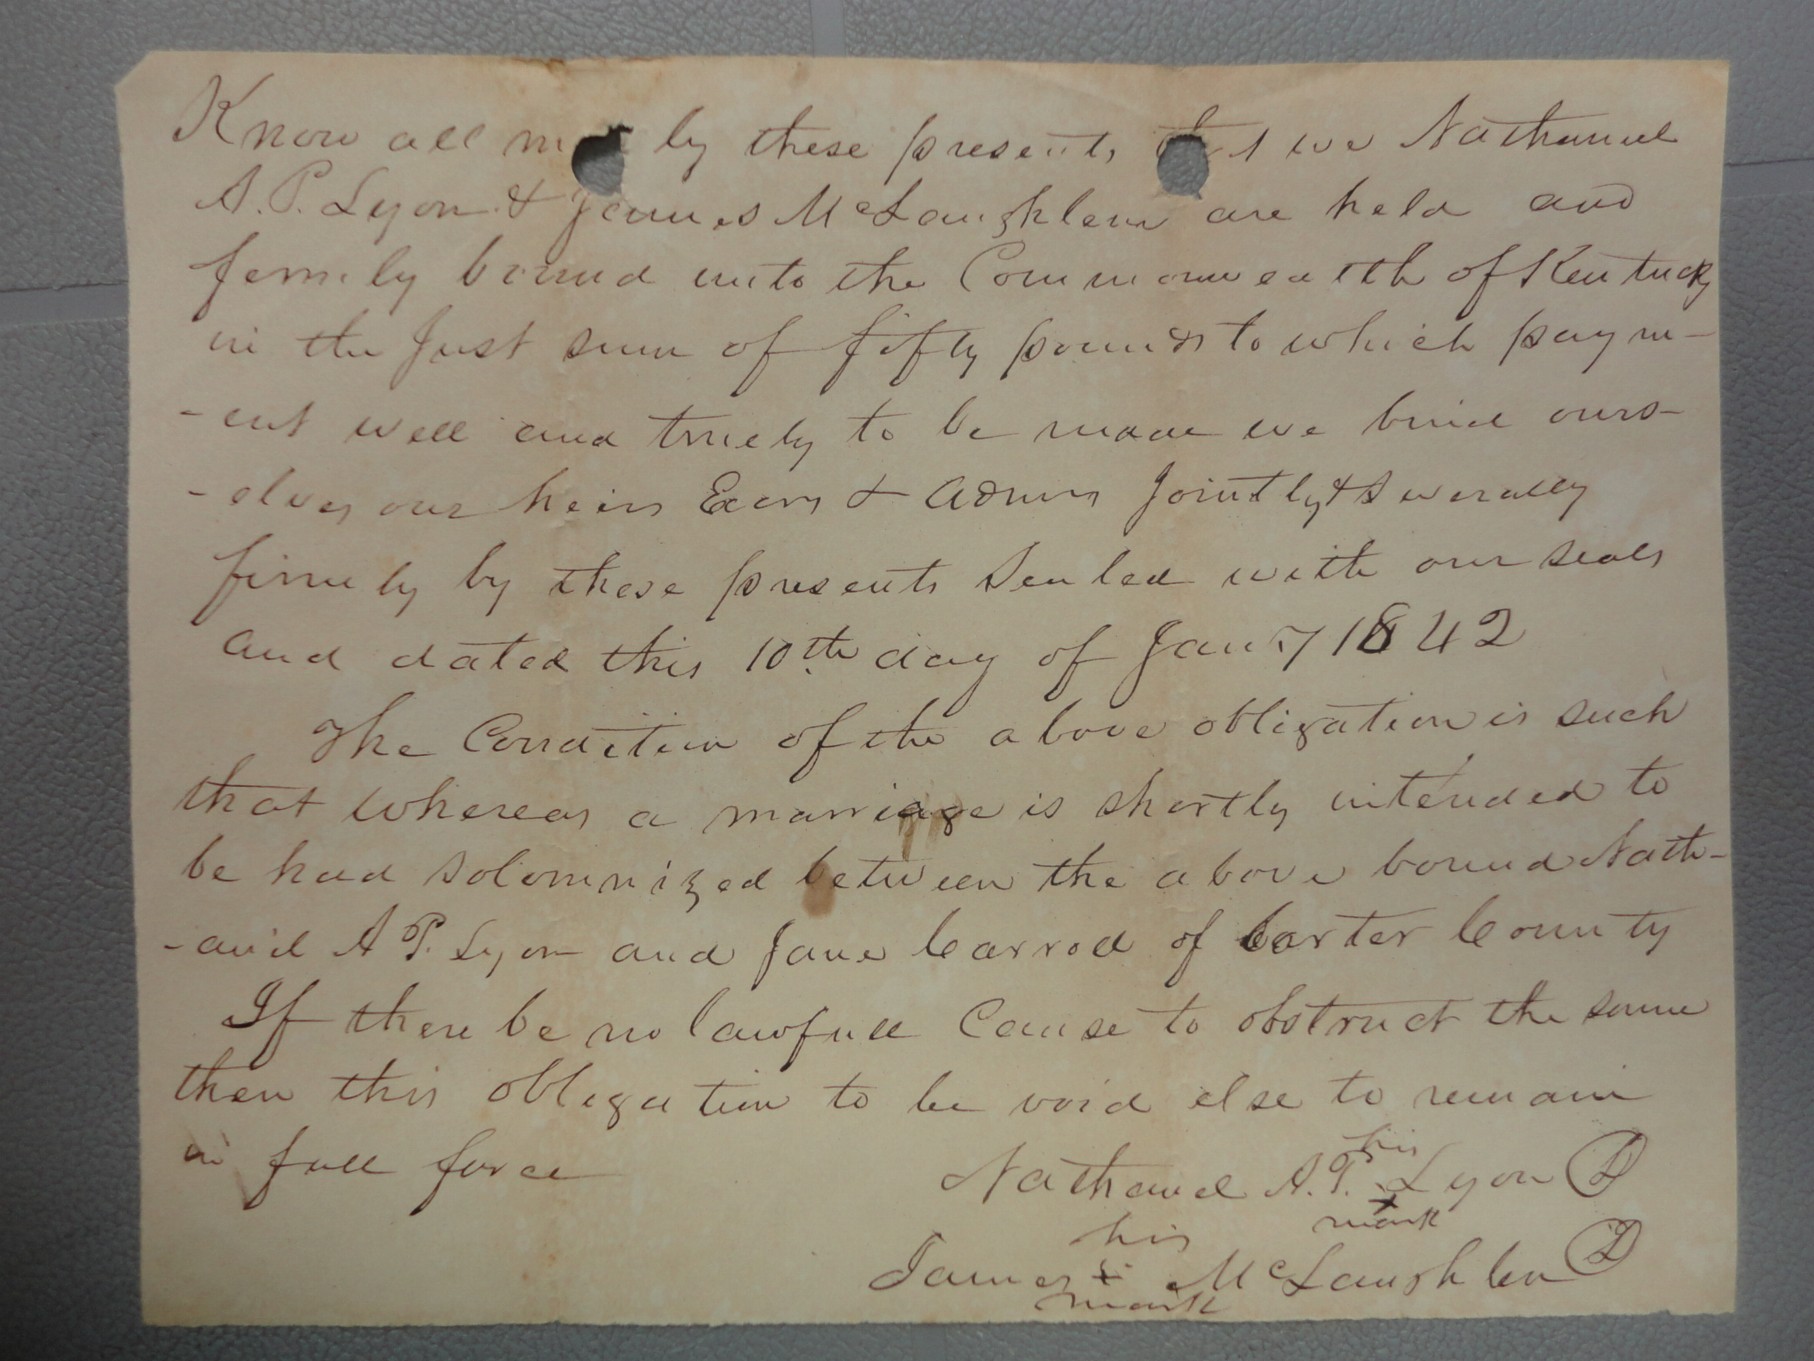 Know all m by these presents that we Nathaniel
A. P. Lyon & James McLaughlen are held and
fermily bound unto the Commonwealth of Kentucky
in the Just sum of fifty pounds to which paym-
-ent well and truely to be made we bind ours-
-elves our heirs Exors & Admrs Jointly & Severally
firmely by these presents Sealed with our seals
and dated this 10th day of Jany 1842
The Condition of the above obligation is such
that whereas a marriage is shortly intended to
be had solomnized between the above bound Nath-
-aniel A P. Lyon and Jane Carrod of Carter County
If there be no lawfull Cause to obstruct the same
then this obligation to be void else to remain
in full force
his
Nathaniel A. P. x Lyon
mark
his
James x McLaughlen
mark